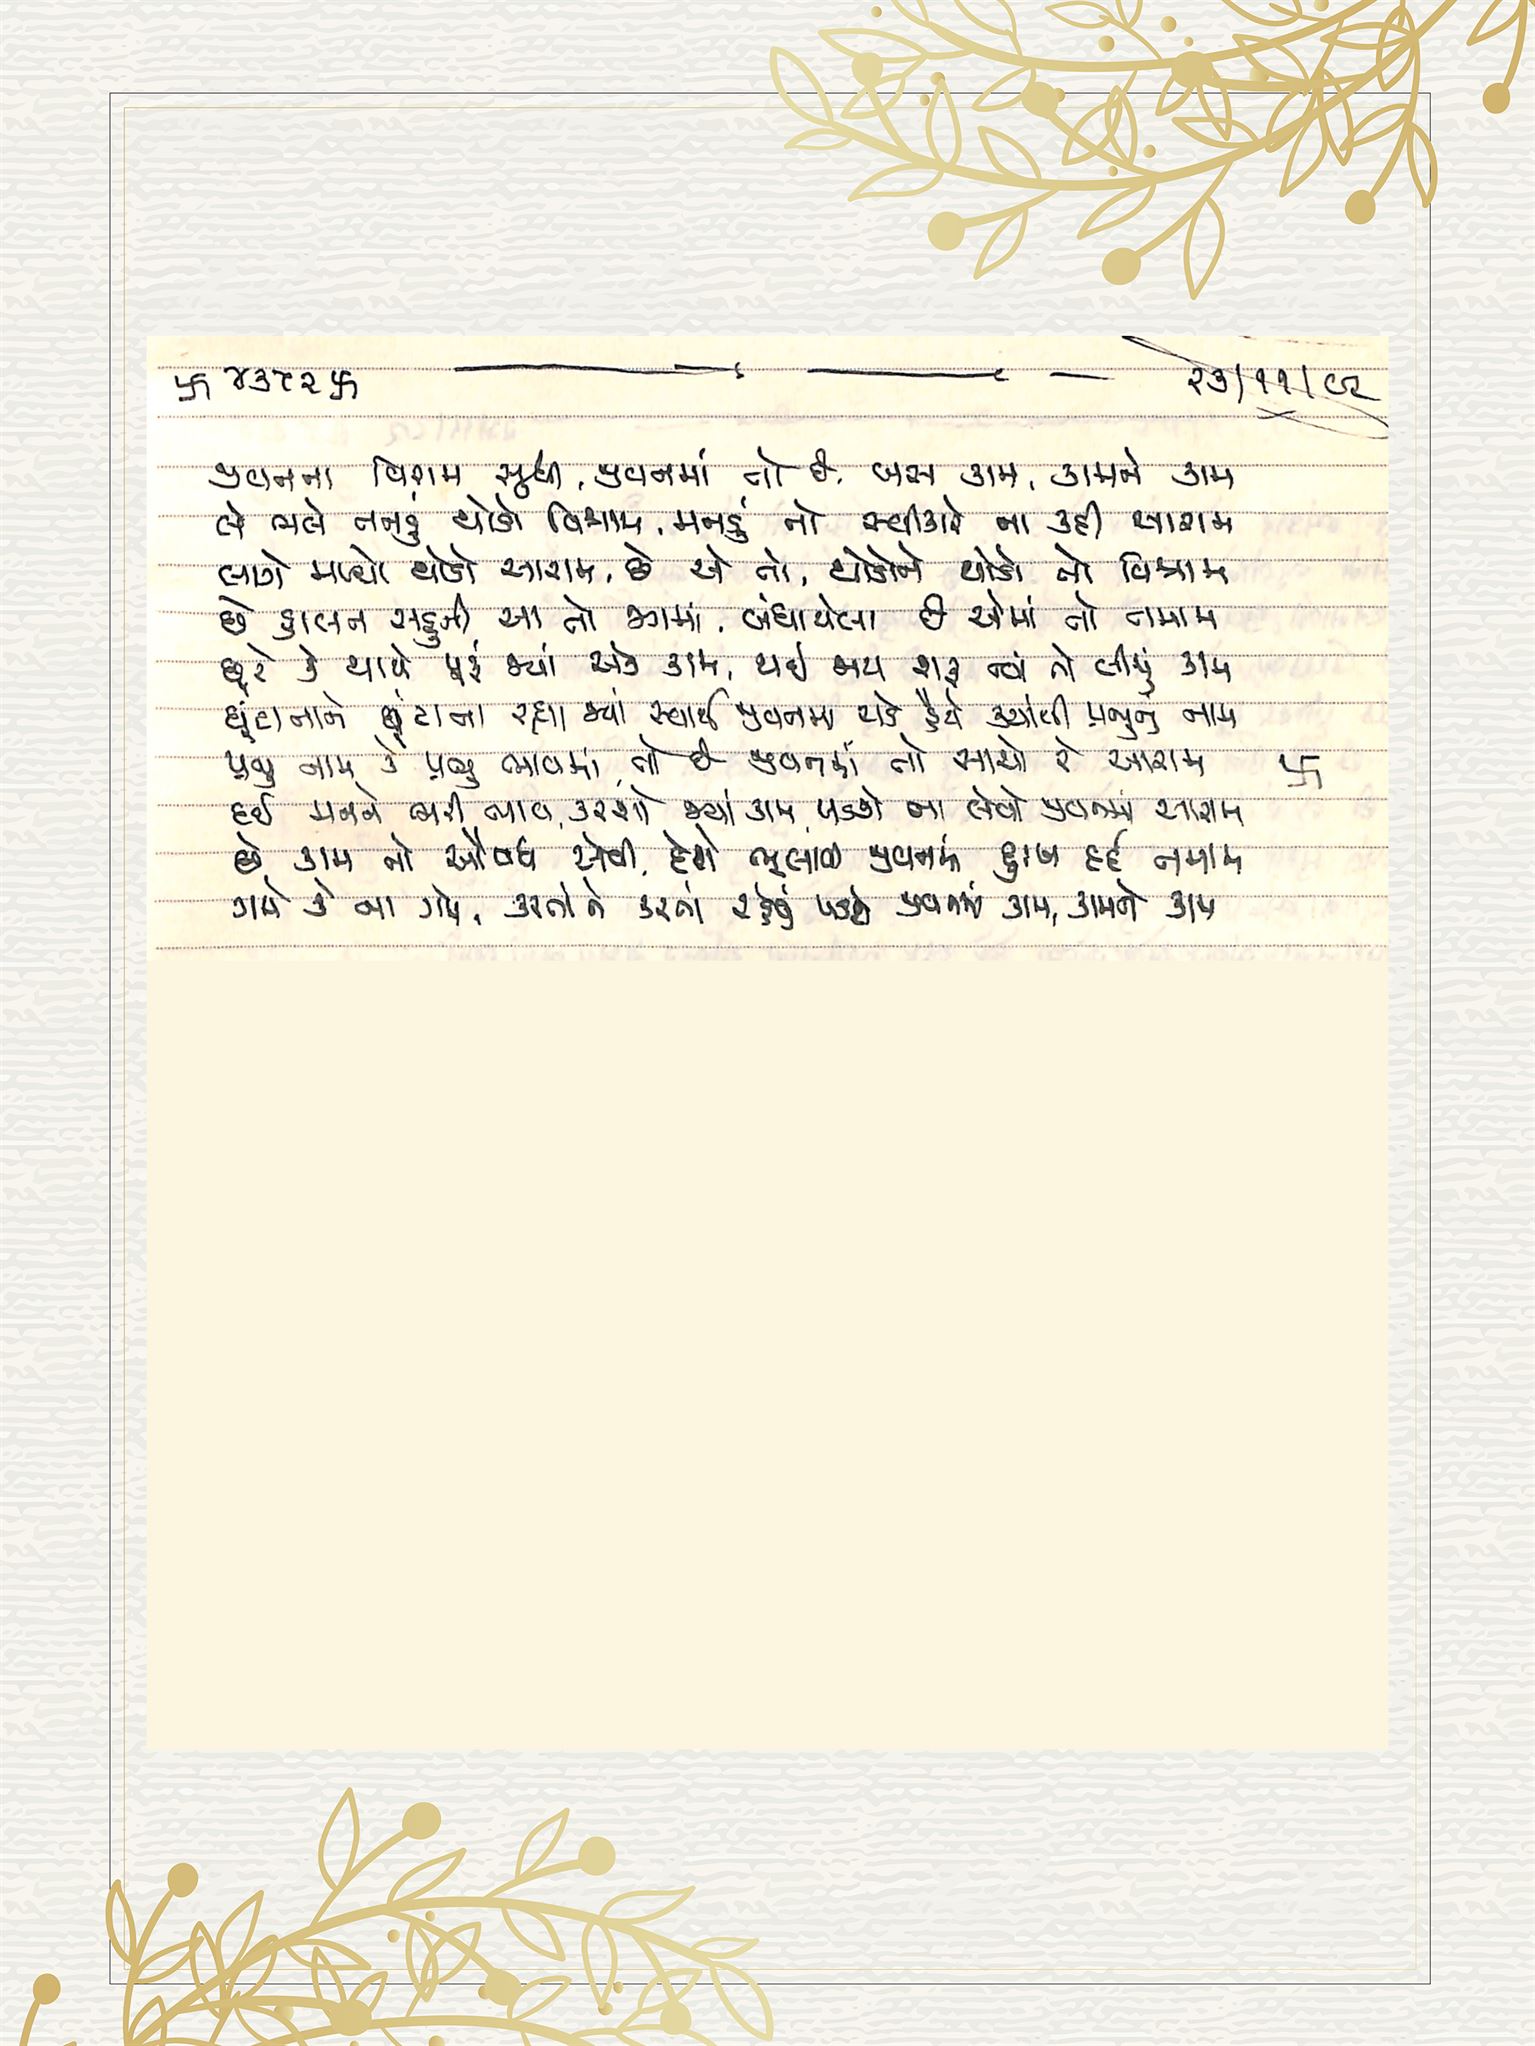 卐 ૪૩૮૨ 卐 ૨૩/૧૧/૯૨
જીવનના વિરામ સુધી, જીવનમાં તો છે બસ કામ, કામને કામ
લે ભલે તનડું થોડો વિશ્રામ, મનડું તો સ્વીકારે ના કદી આરામ
લાગે મળ્યો થોડો આરામ, છે એ તો, થોડોને થોડો તો વિશ્રામ
છે હાલત સહુની આ તો જગમાં, બંધાયેલા છે એમાં તો તમામ
છૂટે કે થાયે પૂરું જ્યાં એક કામ, થઈ જાય શરૂ ત્યાં તો બીજું કામ
ઘૂંટાતાને ઘૂંટાતા રહ્યા જ્યાં સ્વાર્થ જીવનમાં ચડે હૈયે ક્યાંથી પ્રભુનું નામ
પ્રભુ નામ કે પ્રભુ ભાવમાં, તો છે જીવનમાં તો સાચો રે આરામ 卐
દઈ મનને ભરી ભાવ, કરશો જ્યાં કામ, પડશે ના લેવો જીવનમાં આરામ
છે કામ તો ઔષધ એવી, દેશે ભુલાવી જીવનમાં દુઃખ દર્દ તમામ
ગમે કે ના ગમે, કરતાને કરતાં રહેવું પડશે જીવનમાં કામ, કામને કામ